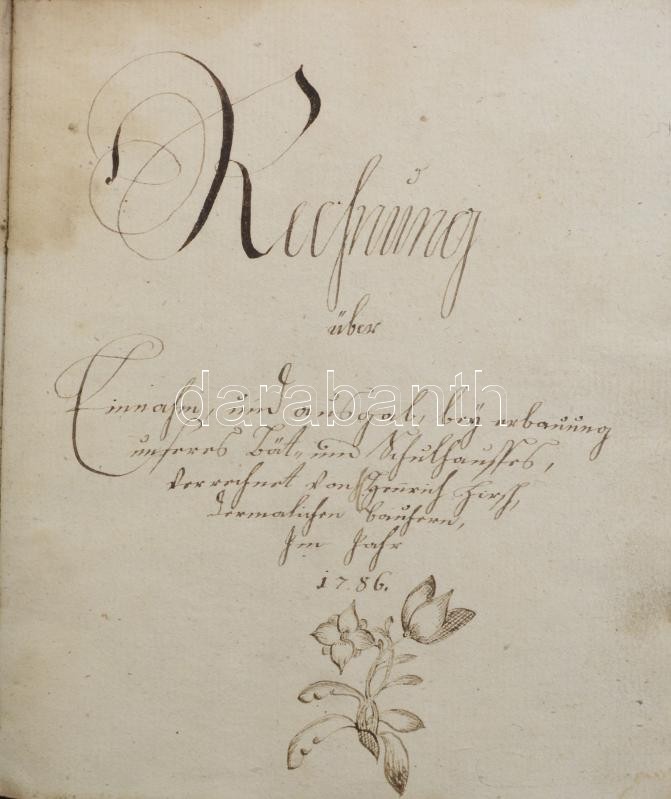 Rechnung
über
Einnahm, und ausgab, beÿ erbauung
unseres Bät- und Schulhausses,
verrechnet von Henrich Hirsch,
dermaligen bauherrn,
Im Jahr
1786.
darabanth